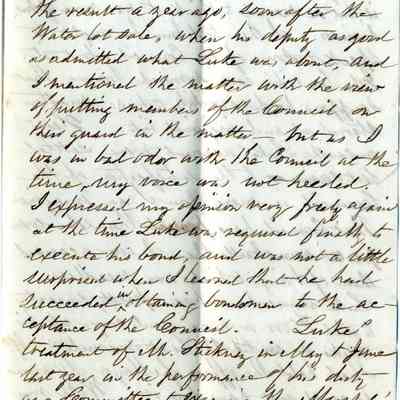 the result a year ago, soon after the
Water lot sale, when his deputy as good
as admitted what Luke was about, and
I mentioned the matter with the view
of putting members of the Council on
their guard in the matter - but as I
was in bad odor with the Council at the
time, my voice was not heeded.
I expressed my opinion very freely again
at the time Luke was required finally to
execute his bond, and was not a little
surprised when I learned that he had
succeeded in obtaining bondsmen to the ac-
ceptance of the Council. Luke's
treatment of Mr. Stickney in May & June
last year in the performance of his duty
as a Committee to